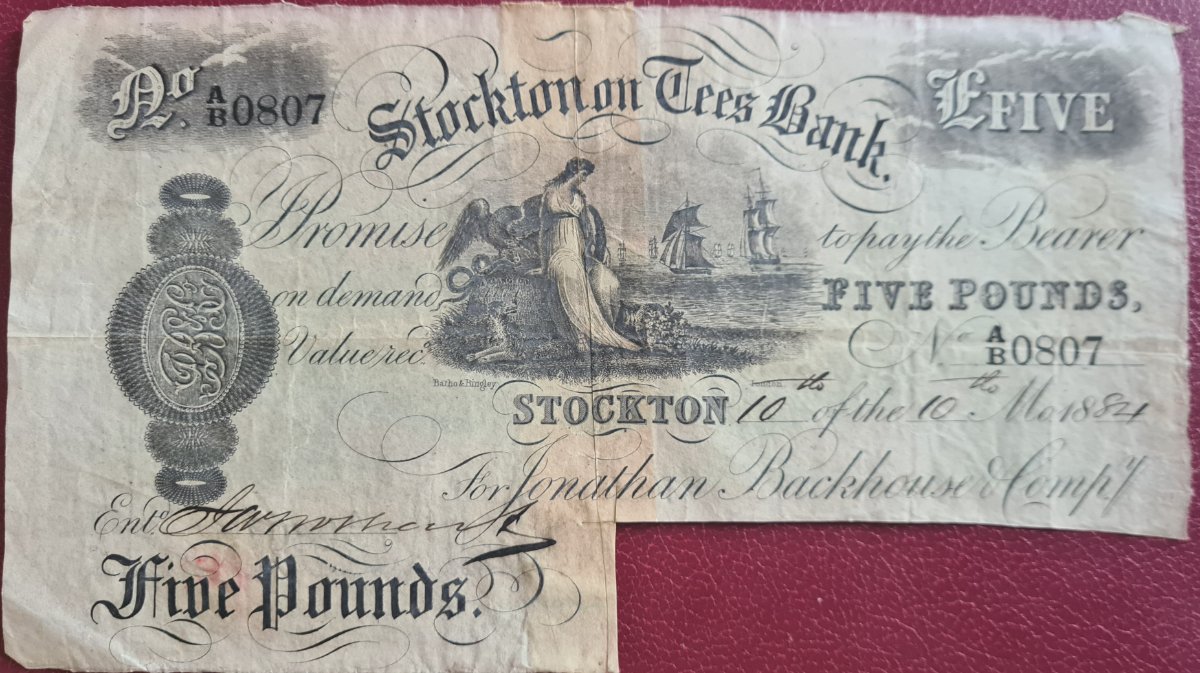 No. A/B 0807
Stockton on Tees Bank.
£FIVE
I Promise to pay the Bearer
on demand, FIVE POUNDS,
Value rec.d No A/B 0807
Batho & Bingley London
STOCKTON 10th of the 10th Mo 1884
For Jonathan Backhouse & Compy
Entd
Five Pounds.